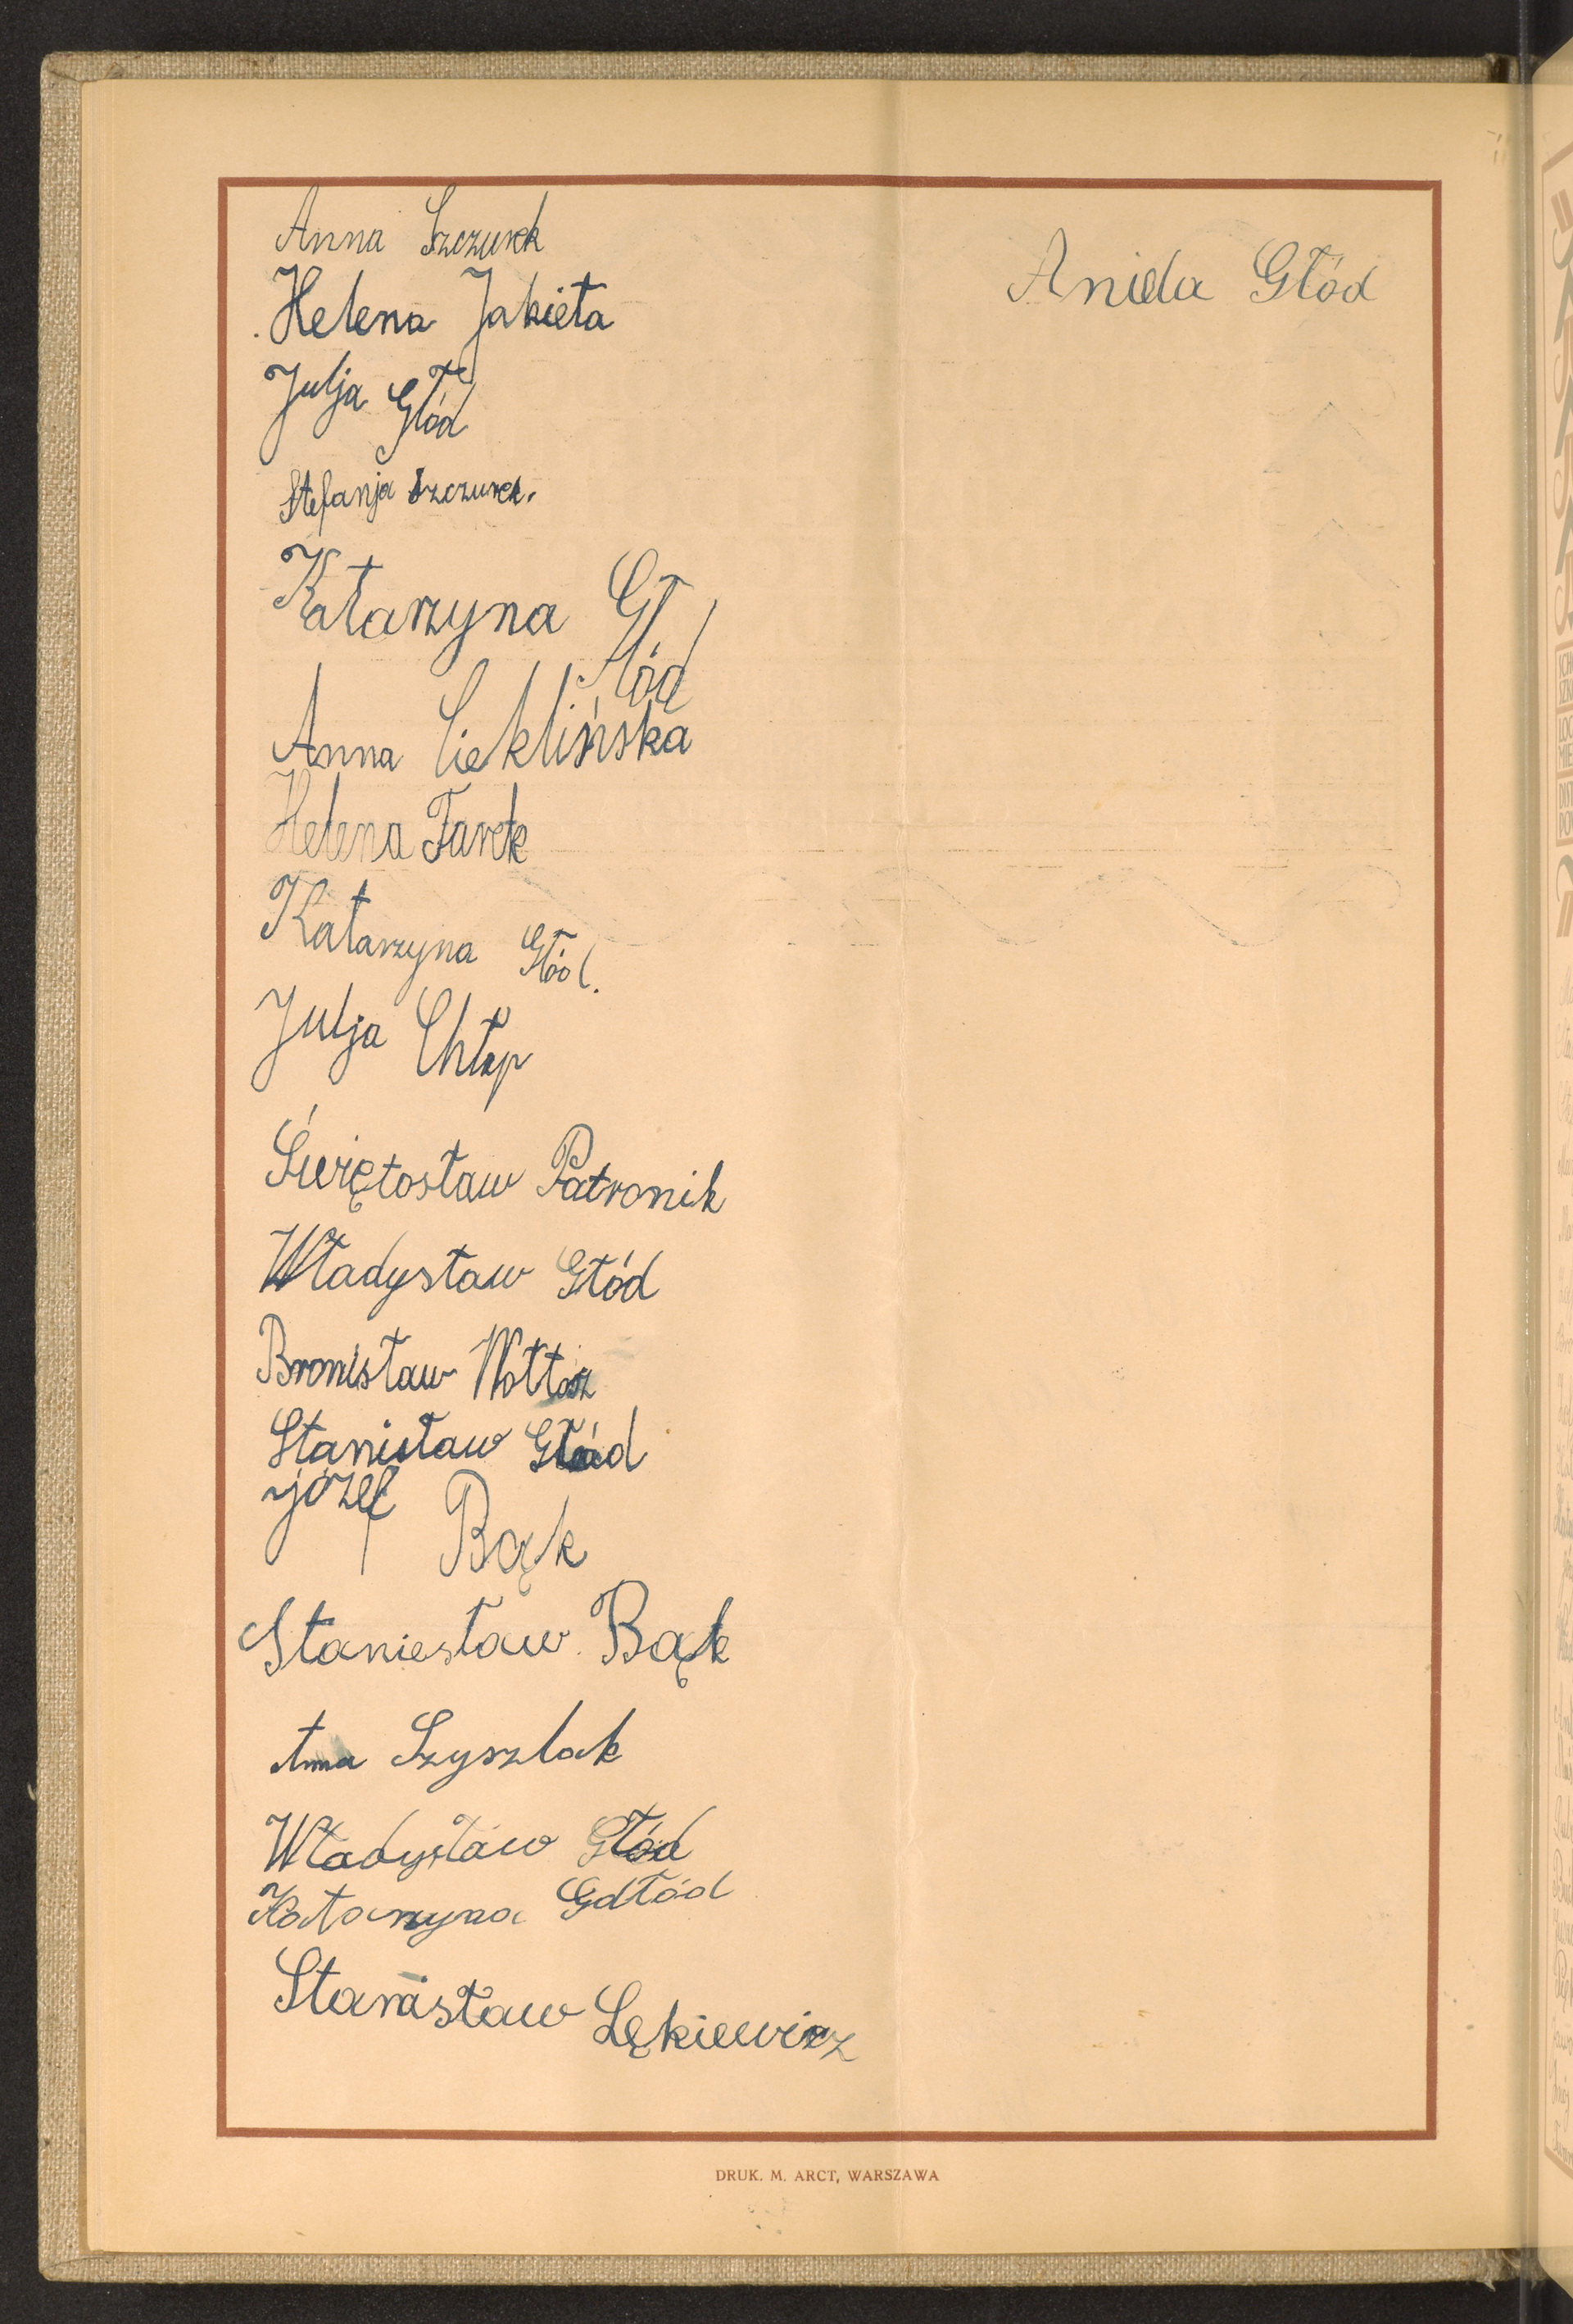 Anna Szczurek
Helena Jakieta
Julja Głód
Stefanja Szczurek.
Katarzyna Gł
łód
Anna Cieklińska
Helena Farek
Katarzyna Głód.
Julja Chłap
Świętosław Patronik
Władysław Głód
Bronisław Wołtosz
Stanisław Głód
józef Bąk
Staniesław Bąk
Anna Szyszlak
Władysław Głód
Katarzyna Gdłód
Stanisław Lękiewicz
Aniela Głód
DRUK. M. ARCT, WARSZAWA